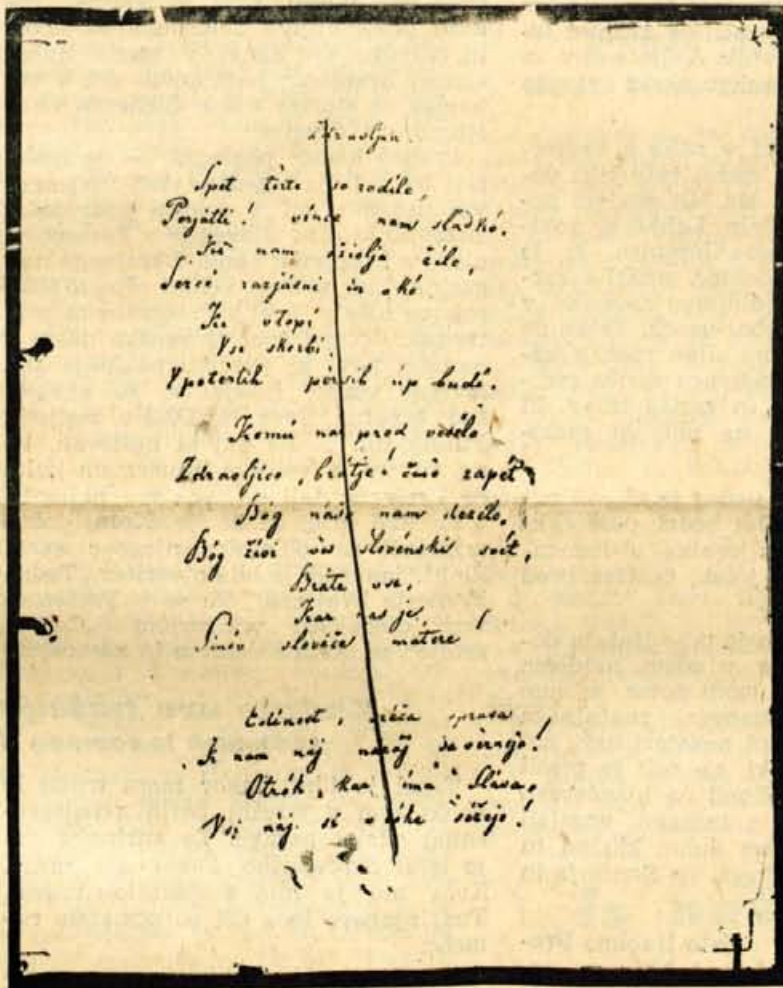 Zdravljica.
Spet tèrte so rodile,
Perjátli! vínce nam sladkó,
Ki nam oživlja žile,
Sercé razjásni in okó
Ki vtopi
Vse skerbi,
V potèrtih pèrsih úp budi.
Komú nar pred vesélo
Zdravljico, bratje! čmò zapét
Bóg naše nam deželo,
Bóg živi ves slovénski svét,
Brate vse,
Kar nas je
Sinóv slovéče mátere!
Edinost, sréča, sprava
K nam náj nazáj se vèrnejo!
Otrók, kar ima Slava,
Vsi náj si v róke séžejo!